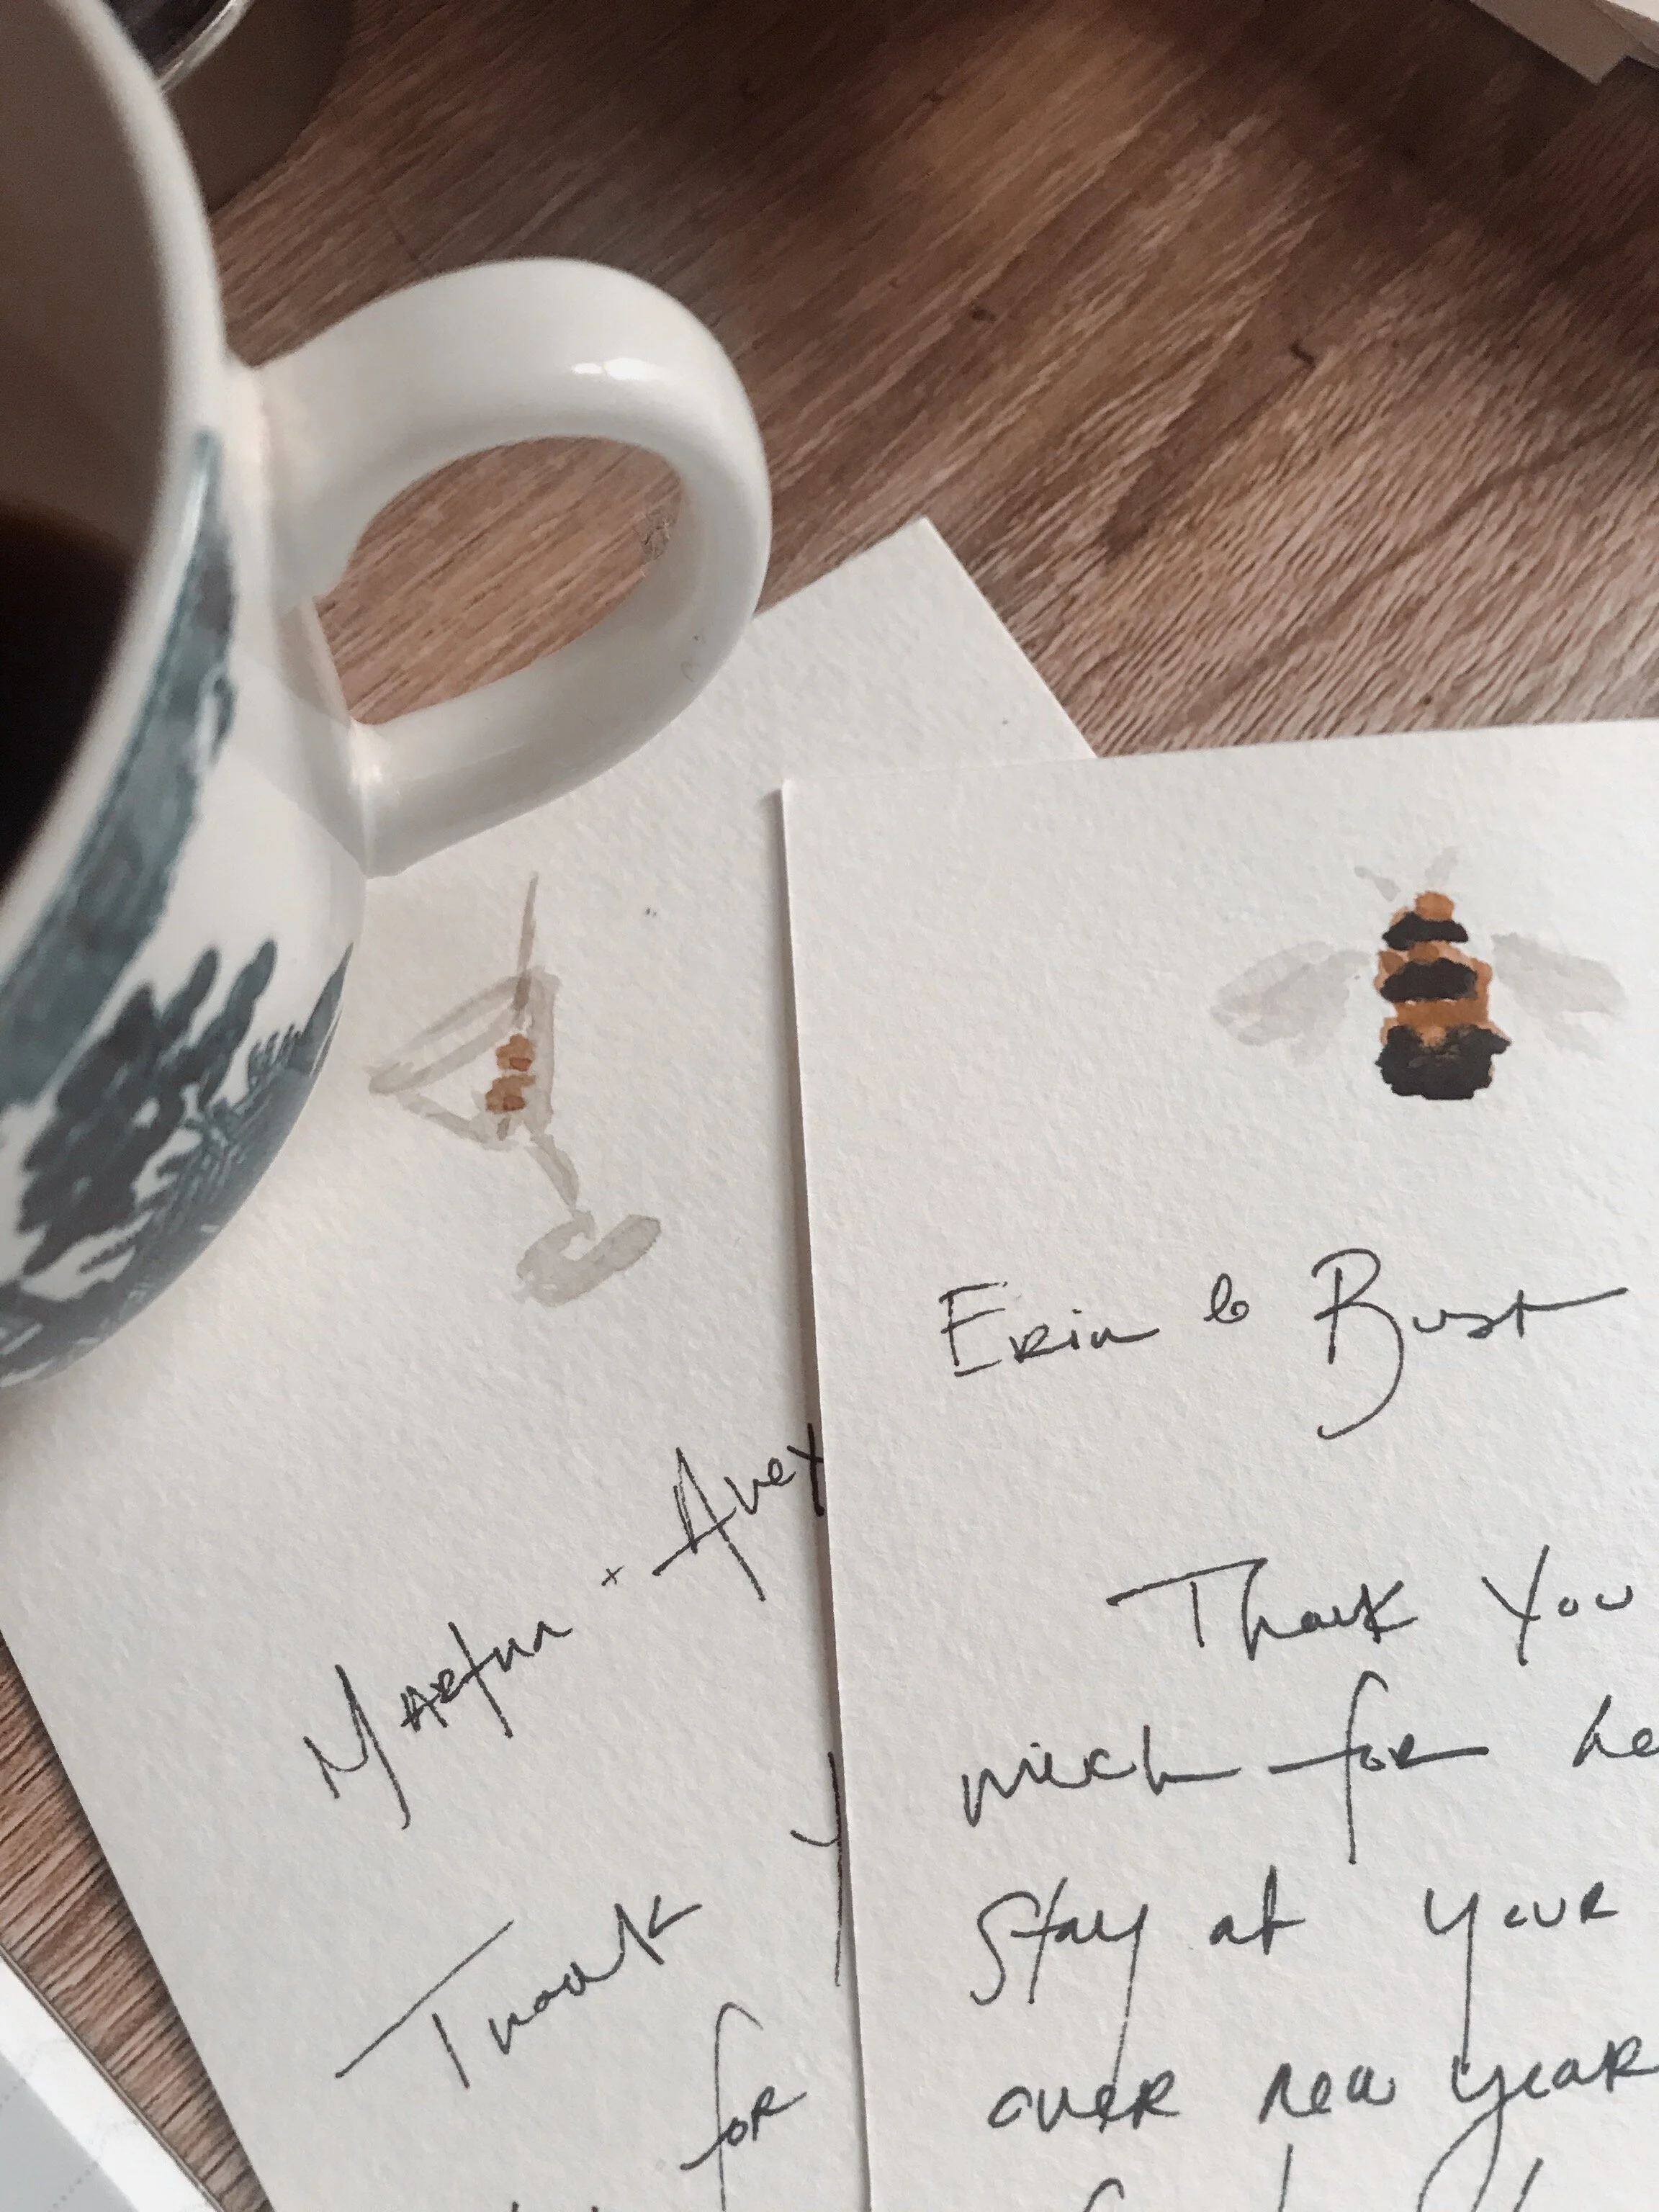 Martha + Avey
Thank Y
for
Erin & Burt
Thank You
much for he
stay at your
over new year